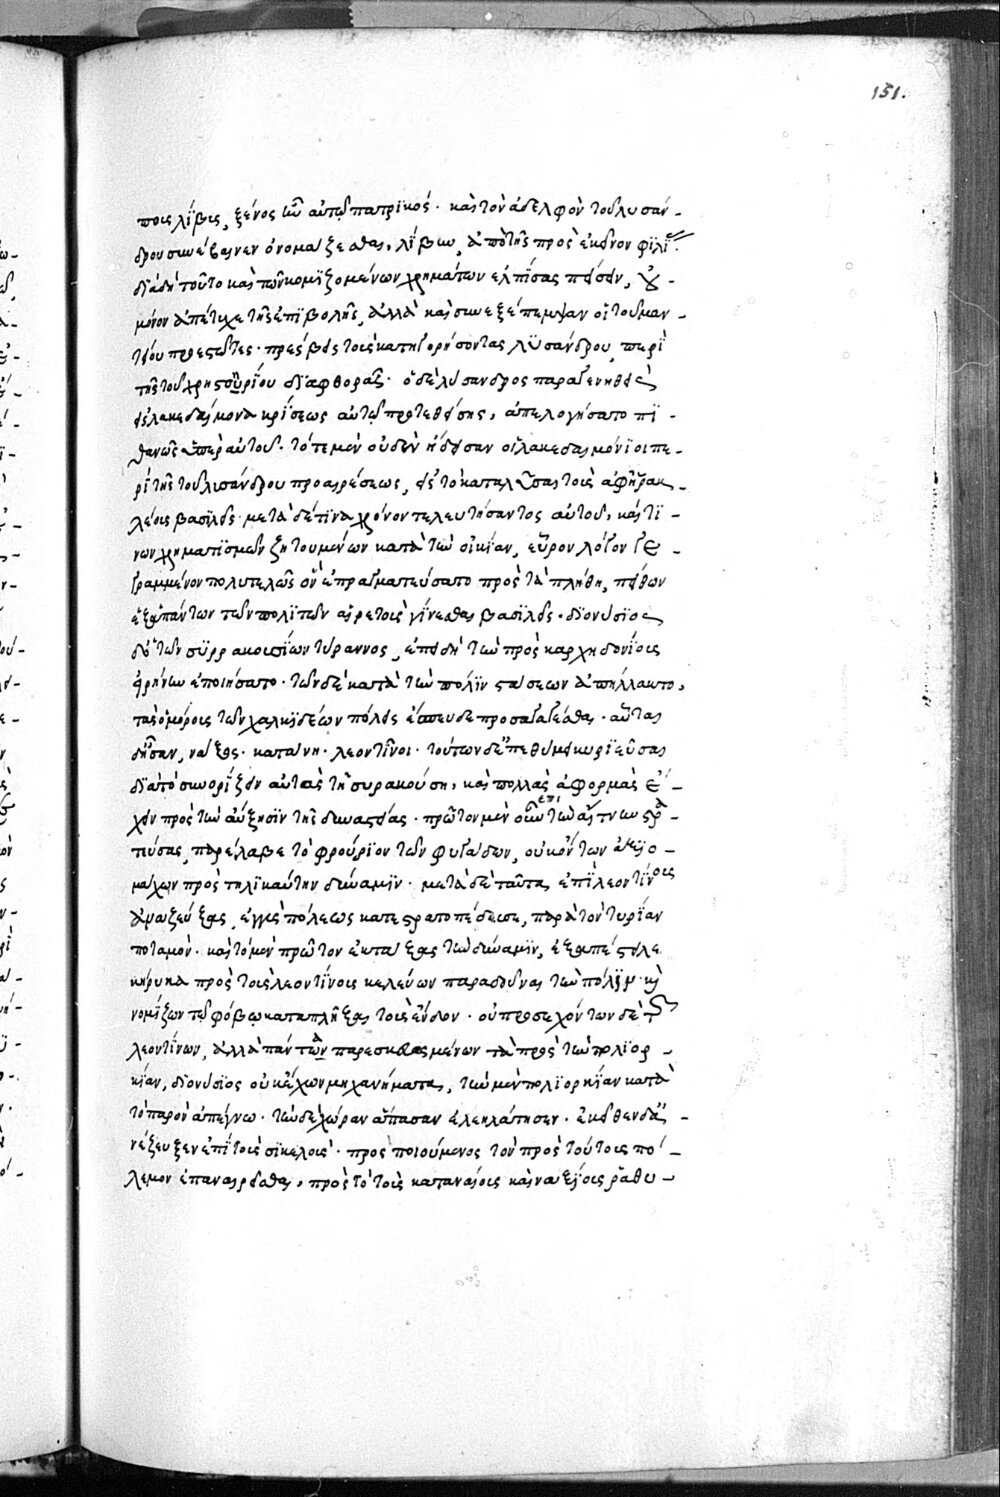 151.
ποις λίβυς, ξένος ὢν αὐτῷ πατρικός· καὶ τὸν ἀδελφὸν τοῦ λυσάν-
δρου συνέβαινεν ὀνομάζεσθαι λίβυν, ἀπὸ τῆς πρὸς ἐκεῖνον φιλί-
διὰ δὴ τοῦτο καὶ τῶν κομιζομένων χρημάτων ἐλπίσας πείσειν, οὐ
μόνον ἀπέτυχε τῆς ἐπιβολῆς, ἀλλὰ καὶ συνεξέπεμψαν οἱ τοῦ μαν-
τείου προεστῶτες· πρέσβεις τοὺς κατηγορήσοντας λυσάνδρου, περὶ
τῆς τοῦ χρηστηρίου διαφθορᾶς· ὁ δὲ λύσανδρος παραγενηθεὶς
εἰς λακεδαίμονα κρίσεως αὐτῷ προτεθείσης, ἀπελογήσατο πι-
θανῶς ὑπὲρ αὐτοῦ. τότε μὲν οὐδὲν ᾔδεισαν οἱ λακεδαιμόνιοι πε-
ρὶ τῆς τοῦ λισάνδρου προαιρέσεως, εἰς τὸ καταλῦσαι τοὺς ἀφ' ἡρακ-
λέους βασιλεῖς· μετὰ δέ τινα χρόνον τελευτήσαντος αὐτοῦ, καὶ τι-
νων χρηματισμῶν ζητουμένων κατὰ τὴν οἰκίαν, εὗρον λόγον γε-
γραμμένον πολυτελῶς ὃν ἐπραγματεύσατο πρὸς τὰ πλήθη, πείθων
ἐξ ἁπάντων τῶν πολιτῶν αἱρετοὺς γίνεσθαι βασιλεῖς. διονύσιος
δ' ὁ τῶν συρρακουσίων τύραννος, ἐπειδὴ τὴν πρὸς καρχηδονίοις
εἰρήνην ἐποιήσατο· τῶν δὲ κατὰ τὴν πόλιν στάσεων ἀπήλλακτο,
τὰς ὁμόρους τῶν χαλκιδέων πόλεις ἔσπευδε προσαγαγέσθαι. αὗται
δ' ἦσαν, νάξος· κατάνη· λεοντῖνοι· τούτων δ' ἐπεθύμει κυριεῦσαι
διὰ τὸ συνορίζειν αὐτὰς τῇ συρακούσῃ, καὶ πολλὰς ἀφορμὰς ἔ-
χειν πρὸς τὴν αὔξησιν τῆς δυναστείας. πρῶτον μὲν οὖν ἐπὶ τὴν αἴτνην στρα-
τεύσας, παρέλαβε τὸ φρούριον τῶν φυγάδων, οὐκ ὄντων ἀξιο-
μάχων πρὸς τηλικαύτην δύναμιν· μετὰ δὲ ταῦτα ἐπὶ λεοντίνοις
ἀναζεύξας, ἐγγὺς πόλεως κατεστρατοπέδευσε, παρὰ τὸν τυρίαν
ποταμόν· καὶ τὸ μὲν πρῶτον ἐκτάξας τὴν δύναμιν, ἐξαπέστειλε
κήρυκα πρὸς τοὺς λεοντίνους κελεύων παραδοῦναι τὴν πόλιν· καὶ
νομίζων τῷ φόβῳ καταπλήξας τοὺς ἔνδον· οὐ προσεχόντων δὲ τῶν
λεοντίνων, ἀλλὰ πάντων παρεσκευασμένων τὰ πρὸς τὴν πολιορ-
κίαν, διονύσιος οὐκ ἔχων μηχανήματα, τὴν μὲν πολιορκίαν κατὰ
τὸ παρὸν ἀπέγνω· τὴν δὲ χώραν ἅπασαν ἐλεηλάτησεν· ἐκεῖθεν δ' ἀ-
νέζευξεν ἐπὶ τοὺς σικελούς· προσποιούμενος τὸν πρὸς τούτους πό-
λεμον ἐπαναιρεῖσθαι, πρὸς τὸ τοὺς καταναίους καὶ ναξίους ῥαθυ-